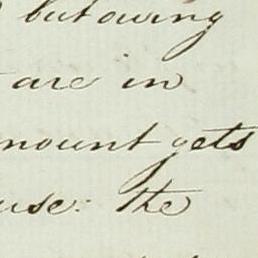 but owing
are in
mount gets
use: the